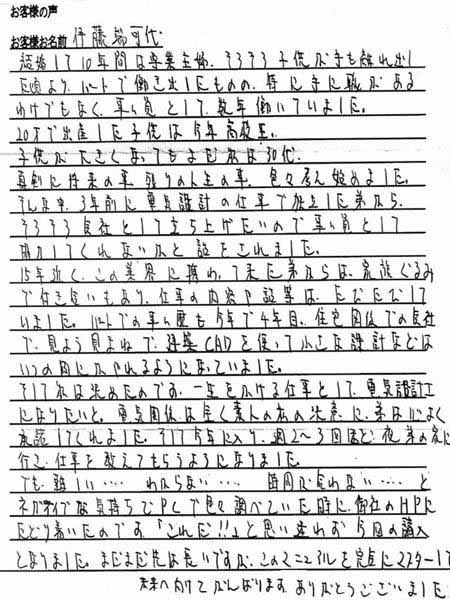 お客様の声
お客様お名前 伊藤 可代
結婚して10年間は専業主婦。そろそろ子供が手も離れ出し
た頃より、パートで働き出したものの、特に手に職がある
わけでもなく、事ム員として、数年働いていました。
20才で出産した子供は今年高校生。
子供が大きくなってもまだ私は30代。
真剣に将来の事、残りの人生の事、色々考え始めました。
そんな中、3年前に電気設計の仕事で独立した弟から、
そろそろ会社として立ち上げたいので事ム員として
協力してくれないかと話をされました。
15年近く、この業界に携わって来た弟からは、家族ぐるみ
で付き合いもあり、仕事の内容や話等は、たびたびして
いました。パートでの事ム歴も今年で4年目。住宅関係での会社
で、見よう見まねで、建築CADを使って小さな設計などは
いつの間にかやれるようになっていました。
そして私は決めたのです。一生をかける仕事として、電気設計士
になりたいと。電気関係は全く素人の私の決意に、弟は心よく
承諾してくれました。そして今年に入り、週2～3回ほど、夜、弟の家に
行き、仕事を教えてもらうようになりました。
でも、難しい…… わからない…… 時間が合わない…… と
ネガティブな気持ちでPCで色々調べていた時に、御社のHPに
たどり着いたのです。「これだ!!」と思い迷わず今回の購入
となりました。まだまだ先は長いですが、このマニュアルを完点にマスターして
未来へ向けてがんばります。ありがとうございました。